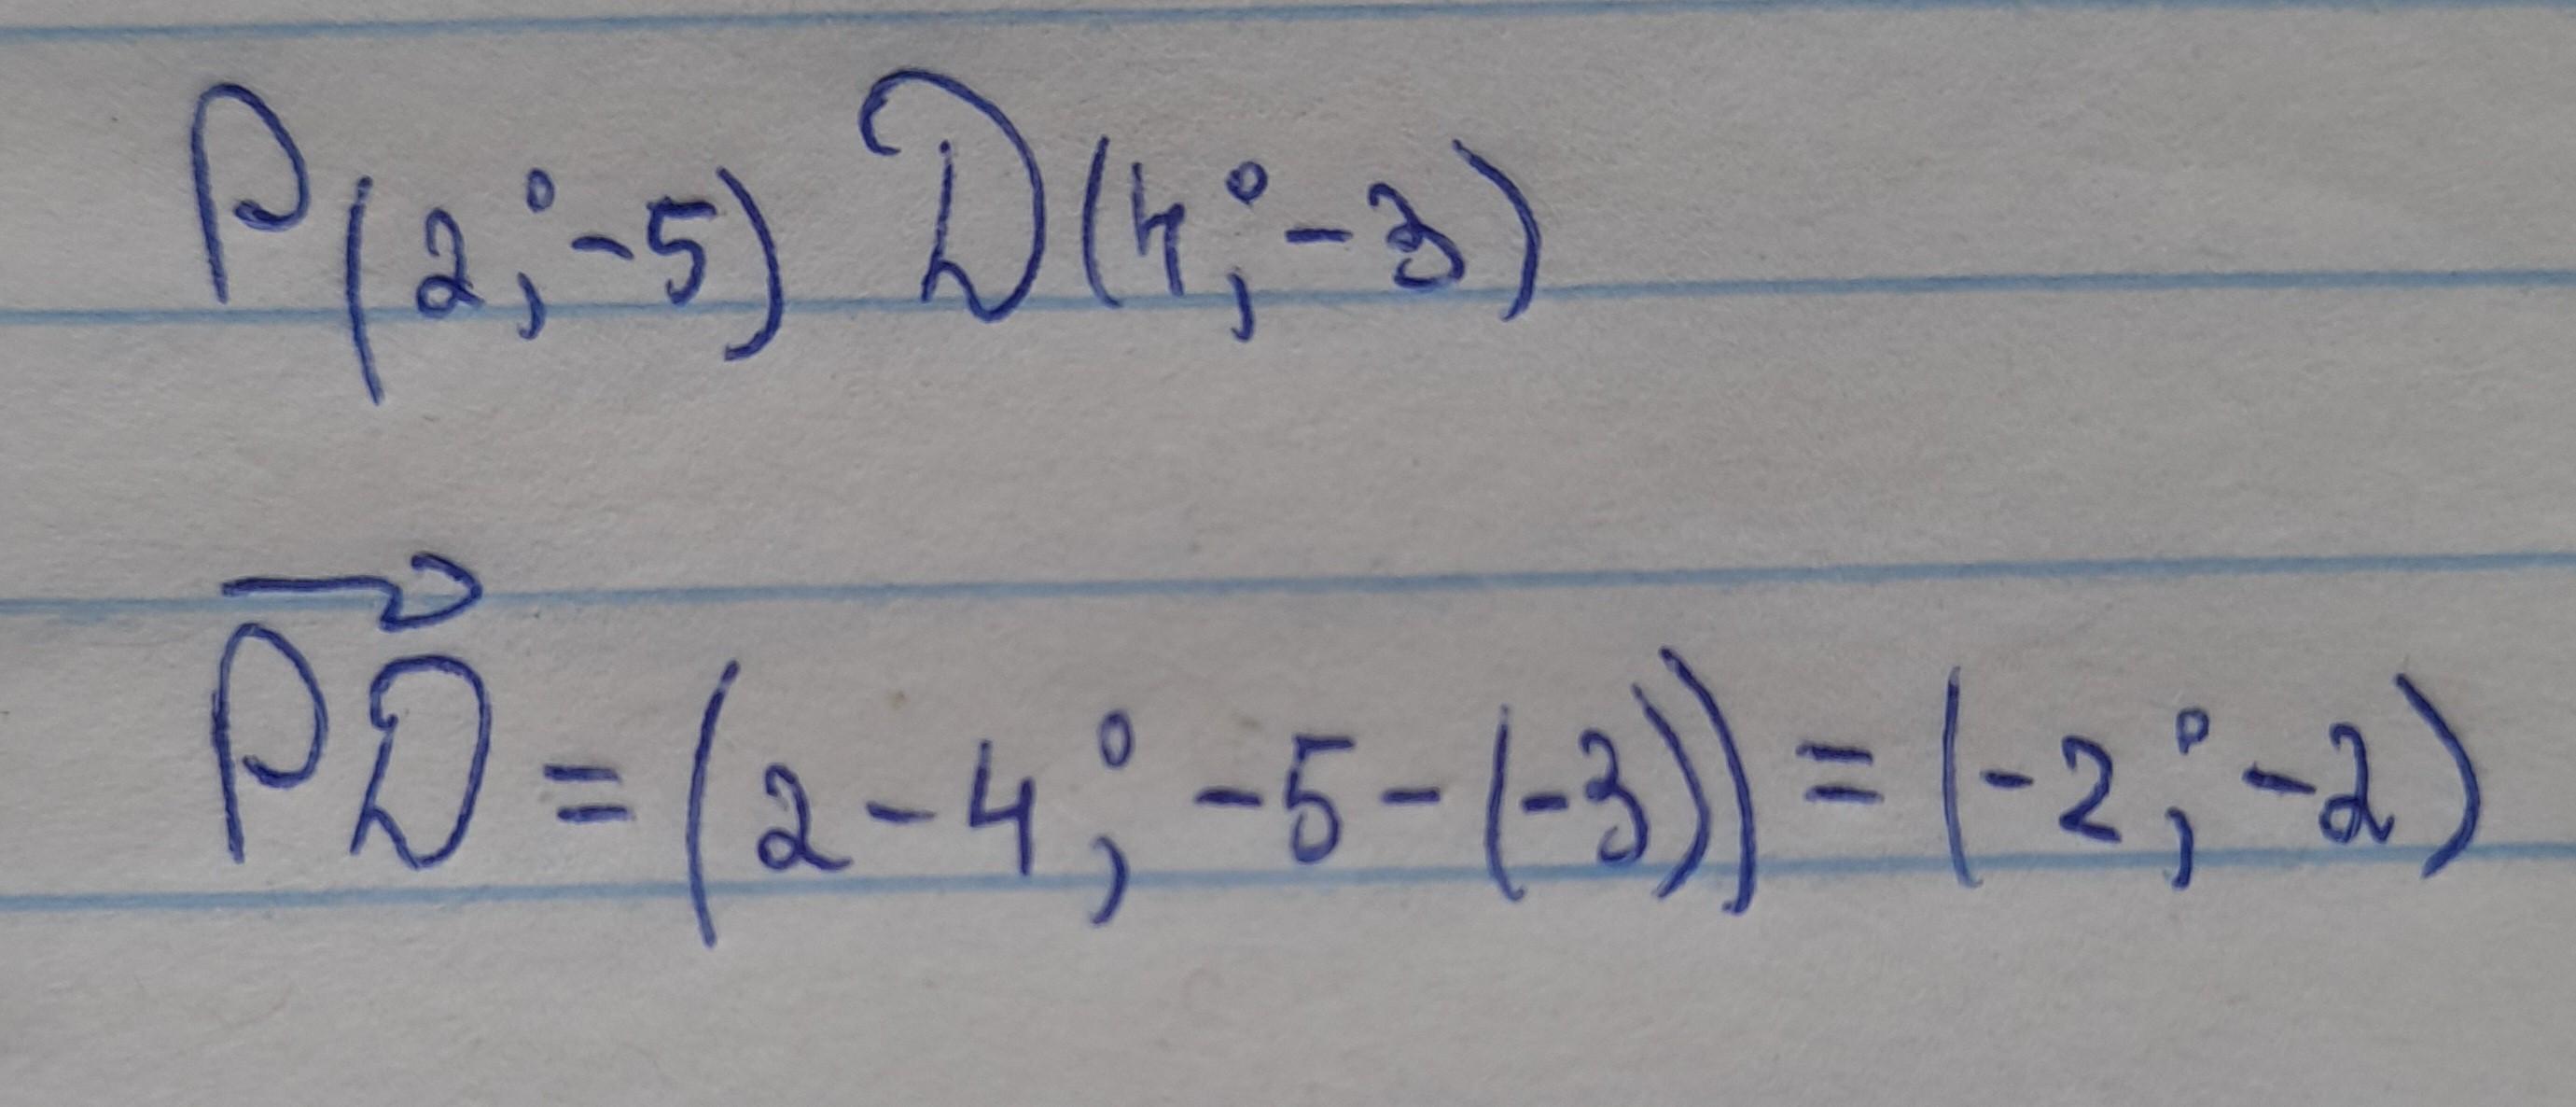 P(2;-5) D(4;-3)
$\overrightarrow{PD}$ = (2-4; -5-(-3)) = (-2; -2)